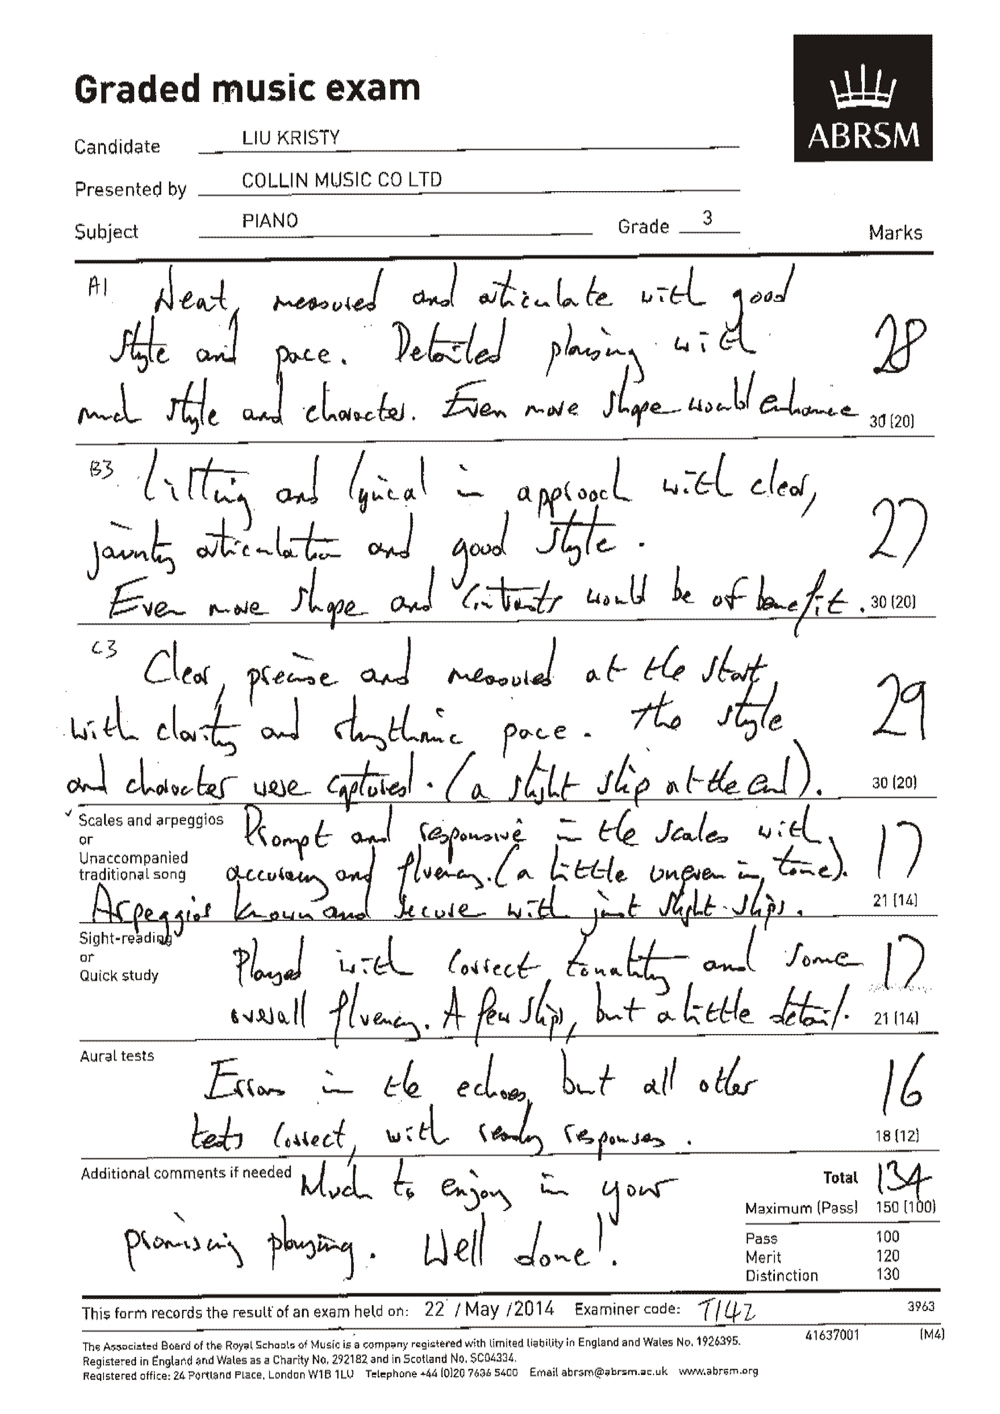 Graded music exam
ABRSM
Candidate LIU KRISTY
Presented by COLLIN MUSIC CO LTD
Subject PIANO Grade 3 Marks
A1 Neat, measured and articulate with good
style and pace. Detailed playing with 28
much style and character. Even more shape would enhance 30 (20)
B3 Lilting and lyrical in approach with clear,
jaunty articulation and good style. 27
Even more shape and contrasts would be of benefit. 30 (20)
C3 Clear, precise and measured at the start,
with clarity and rhythmic pace. The style 29
and character were captured. (a slight slip at the end). 30 (20)
Scales and arpeggios
or
Unaccompanied
traditional song
Prompt and responsive in the scales with 17
accuracy and fluency. (a little uneven in tone).
Arpeggios known and secure with just slight slips. 21 (14)
Sight-reading
or
Quick study
Played with correct tonality and some 17
overall fluency. A few slips, but a little detail. 21 (14)
Aural tests
Errors in the echoes, but all other 16
tests correct, with ready responses. 18 (12)
Additional comments if needed Much to enjoy in your
promising playing. Well done!
Total 134
Maximum (Pass) 150 (100)
Pass 100
Merit 120
Distinction 130
This form records the result of an exam held on: 22 / May / 2014 Examiner code: T142 3963
41637001 (M4)
The Associated Board of the Royal Schools of Music is a company registered with limited liability in England and Wales No. 1926395.
Registered in England and Wales as a Charity No. 292182 and in Scotland No. SC04334.
Registered office: 24 Portland Place, London W1B 1LU Telephone +44 (0)20 7636 5400 Email abrsm@abrsm.ac.uk www.abrsm.org